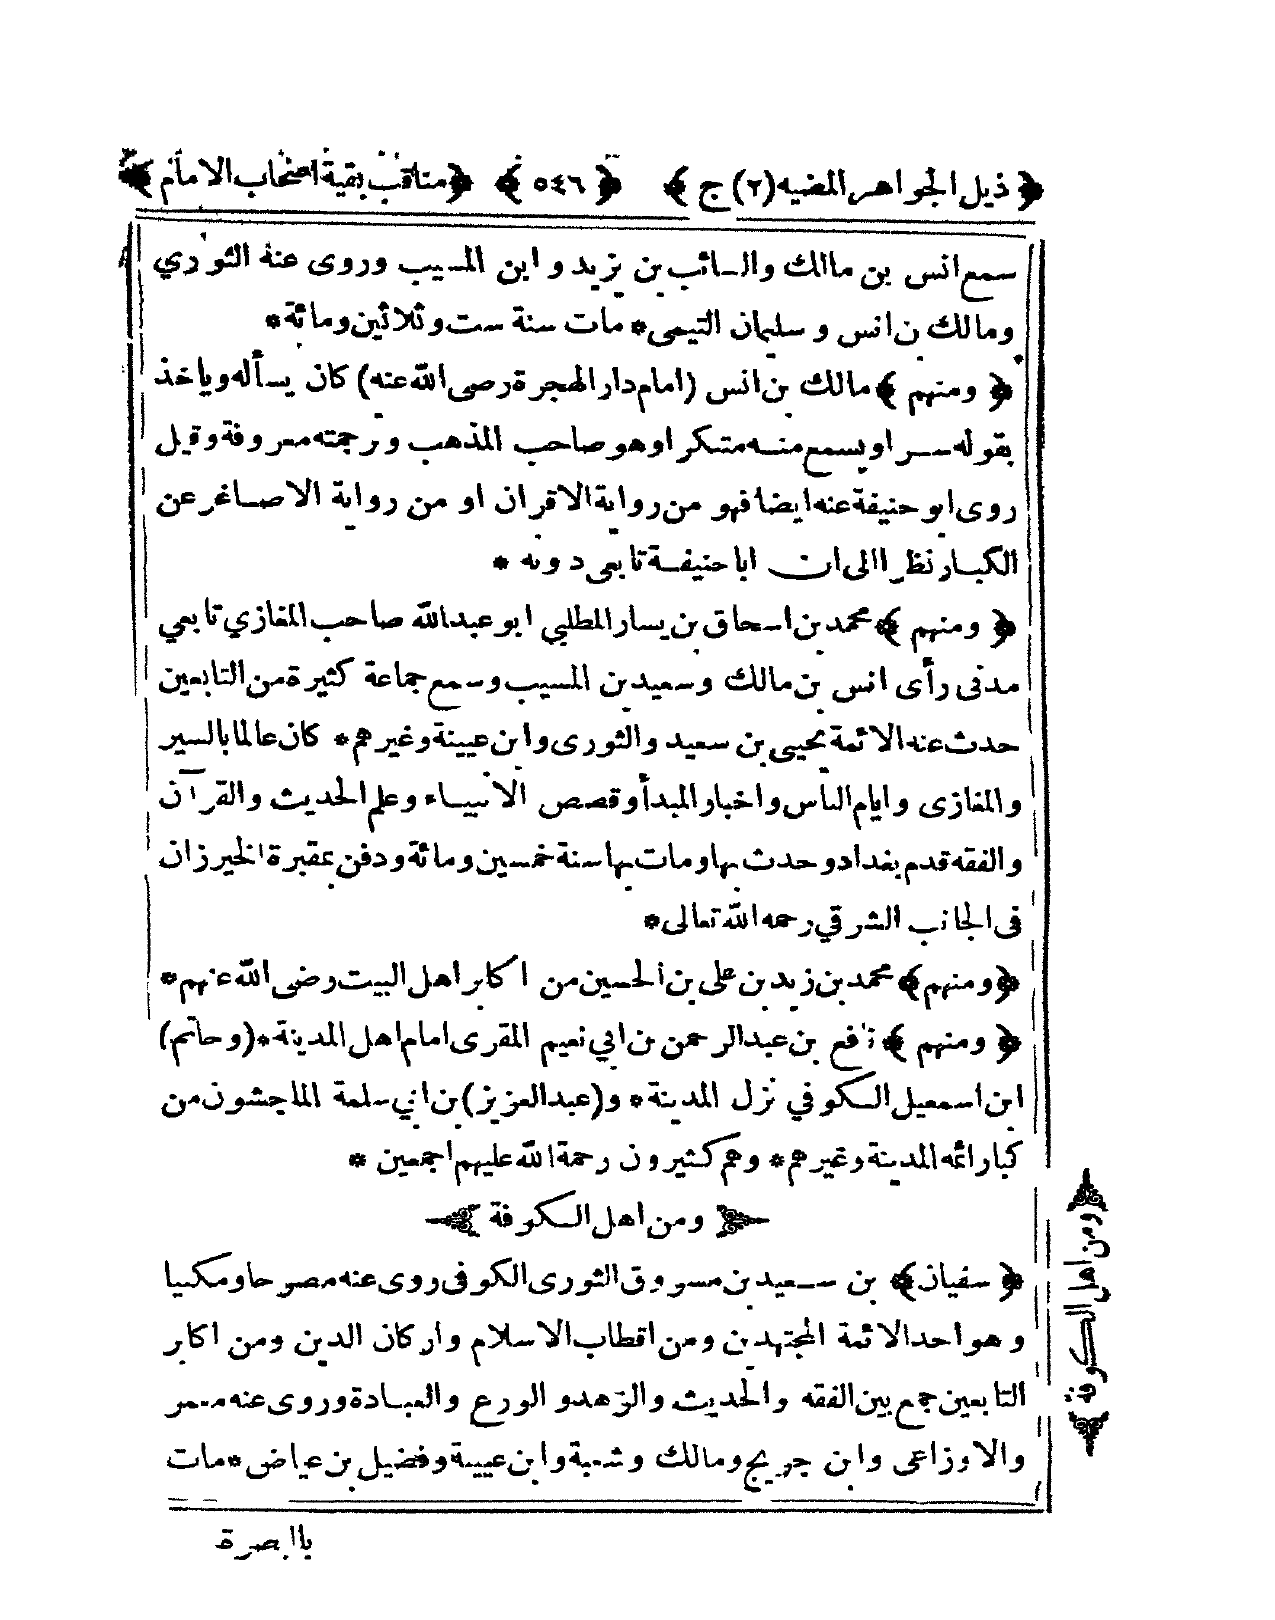 ﴿ ذيل الجواهر المضيه (٢) ج ﴾ ﴿ ٥٤٦ ﴾ ﴿ مناقب بقية اصحاب الامام ﴾
سمع انس بن مالك والسائب بن يزيد و ابن المسيب وروى عنه الثوري
ومالك بن انس و سليمان التيمى * مات سنة ست وثلاثين ومائة *
﴿ ومنهم ﴾ مالك بن انس (امام دار الهجرة رضى الله عنه) كان يسأله وياخذ
بقوله سرا ويسمع منه متنكرا وهو صاحب المذهب وترجمته معروفة وقيل
روى ابو حنيفة عنه ايضا فهو من رواية الاقران او من رواية الاصاغر عن
الكبار نظرا الى ان ابا حنيفة تابعى دونه *
﴿ ومنهم ﴾ محمد بن اسحاق بن يسار المطلبي ابو عبد الله صاحب المغازي تابعي
مدنى رأى انس بن مالك وسعيد بن المسيب وسمع جماعة كثيرة من التابعين
حدث عنه الائمة يحيى بن سعيد والثورى وابن عيينة وغيرهم * كان عالما بالسير
والمغازى وايام الناس واخبار المبدأ وقصص الانبياء وعلم الحديث والقرآن
والفقه قدم بغداد وحدث بها ومات بها سنة خمسين ومائة ودفن بمقبرة الخيرزان
فى الجانب الشرقي رحمه الله تعالى *
﴿ ومنهم ﴾ محمد بن زيد بن على بن الحسين من اكابر اهل البيت رضى الله عنهم *
﴿ ومنهم ﴾ نافع بن عبد الرحمن بن ابي نعيم المقرى امام اهل المدينة * (وحاتم)
ابن اسمعيل الكوفي نزل المدينة * و (عبد العزيز) بن ابي سلمة الماجشون من
كبار ائمه المدينة وغيرهم * وهم كثيرون رحمة الله عليهم اجمعين *
ومن اهل الكوفة
﴿ سفيان ﴾ بن سعيد بن مسروق الثورى الكوفى روى عنه مصرحا ومكنيا
وهو احد الائمة المجتهدين ومن اقطاب الاسلام واركان الدين ومن اكابر
التابعين جمع بين الفقه والحديث والزهد والورع والعبادة وروى عنه معمر
والاوزاعى وابن جريج ومالك وشعبة وابن عيينة وفضيل بن عياض * مات
بالبصرة
ومن اهل الكوفة